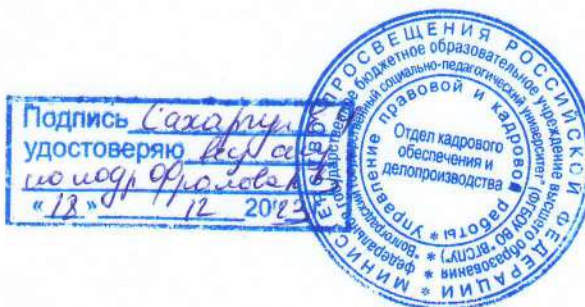 Подпись
удостоверяю
« 12 » 12 2023
МИНИСТЕРСТВО ПРОСВЕЩЕНИЯ РОССИЙСКОЙ ФЕДЕРАЦИИ *
федеральное государственное бюджетное образовательное учреждение высшего образования *
"Волгоградский государственный социально-педагогический университет" (ФГБОУ ВО "ВГСПУ") *
Управление правовой и кадровой работы *
Отдел кадрового
обеспечения и
делопроизводства